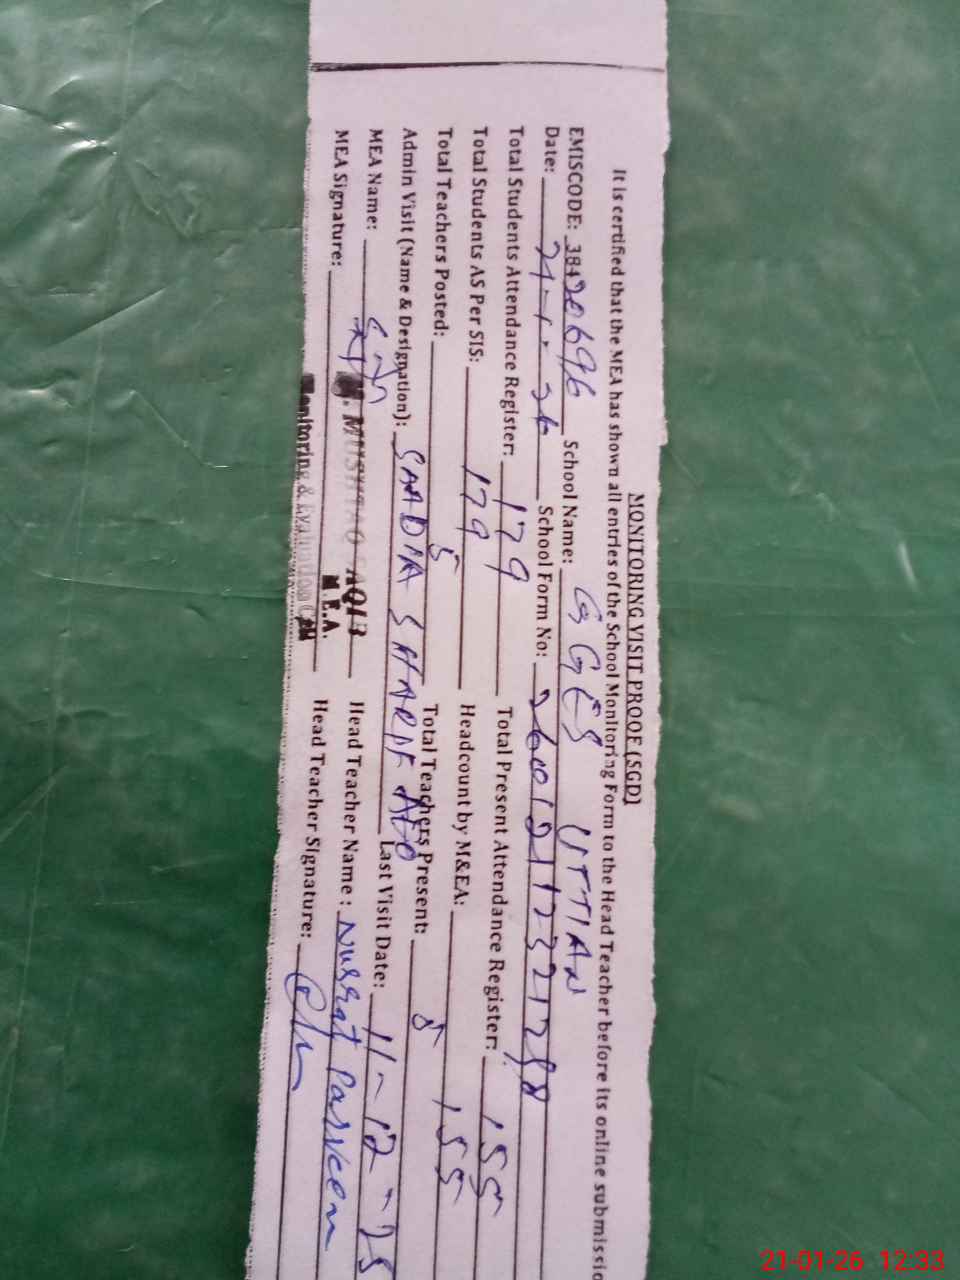 MONITORING VISIT PROOF (SGD)
It is certified that the MEA has shown all entries of the School Monitoring Form to the Head Teacher before its online submissio
EMISCODE: 38420696 School Name: GGES UTTIAN
Date: 21-1-26 School Form No:
Total Students Attendance Register: 179 Total Present Attendance Register: 155
Total Students AS Per SIS: 179 Headcount by M&EA: 155
Total Teachers Posted: 5 Total Teachers Present: 5
Admin Visit (Name & Designation): SAADIA SHARIF AEO Last Visit Date: 11-12-25
MEA Name: MUSHTAQ AQIB Head Teacher Name: Nusrat Parveen
M.E.A.
MEA Signature: Monitoring & Evaluation Cell Head Teacher Signature:
21-01-26 12:33